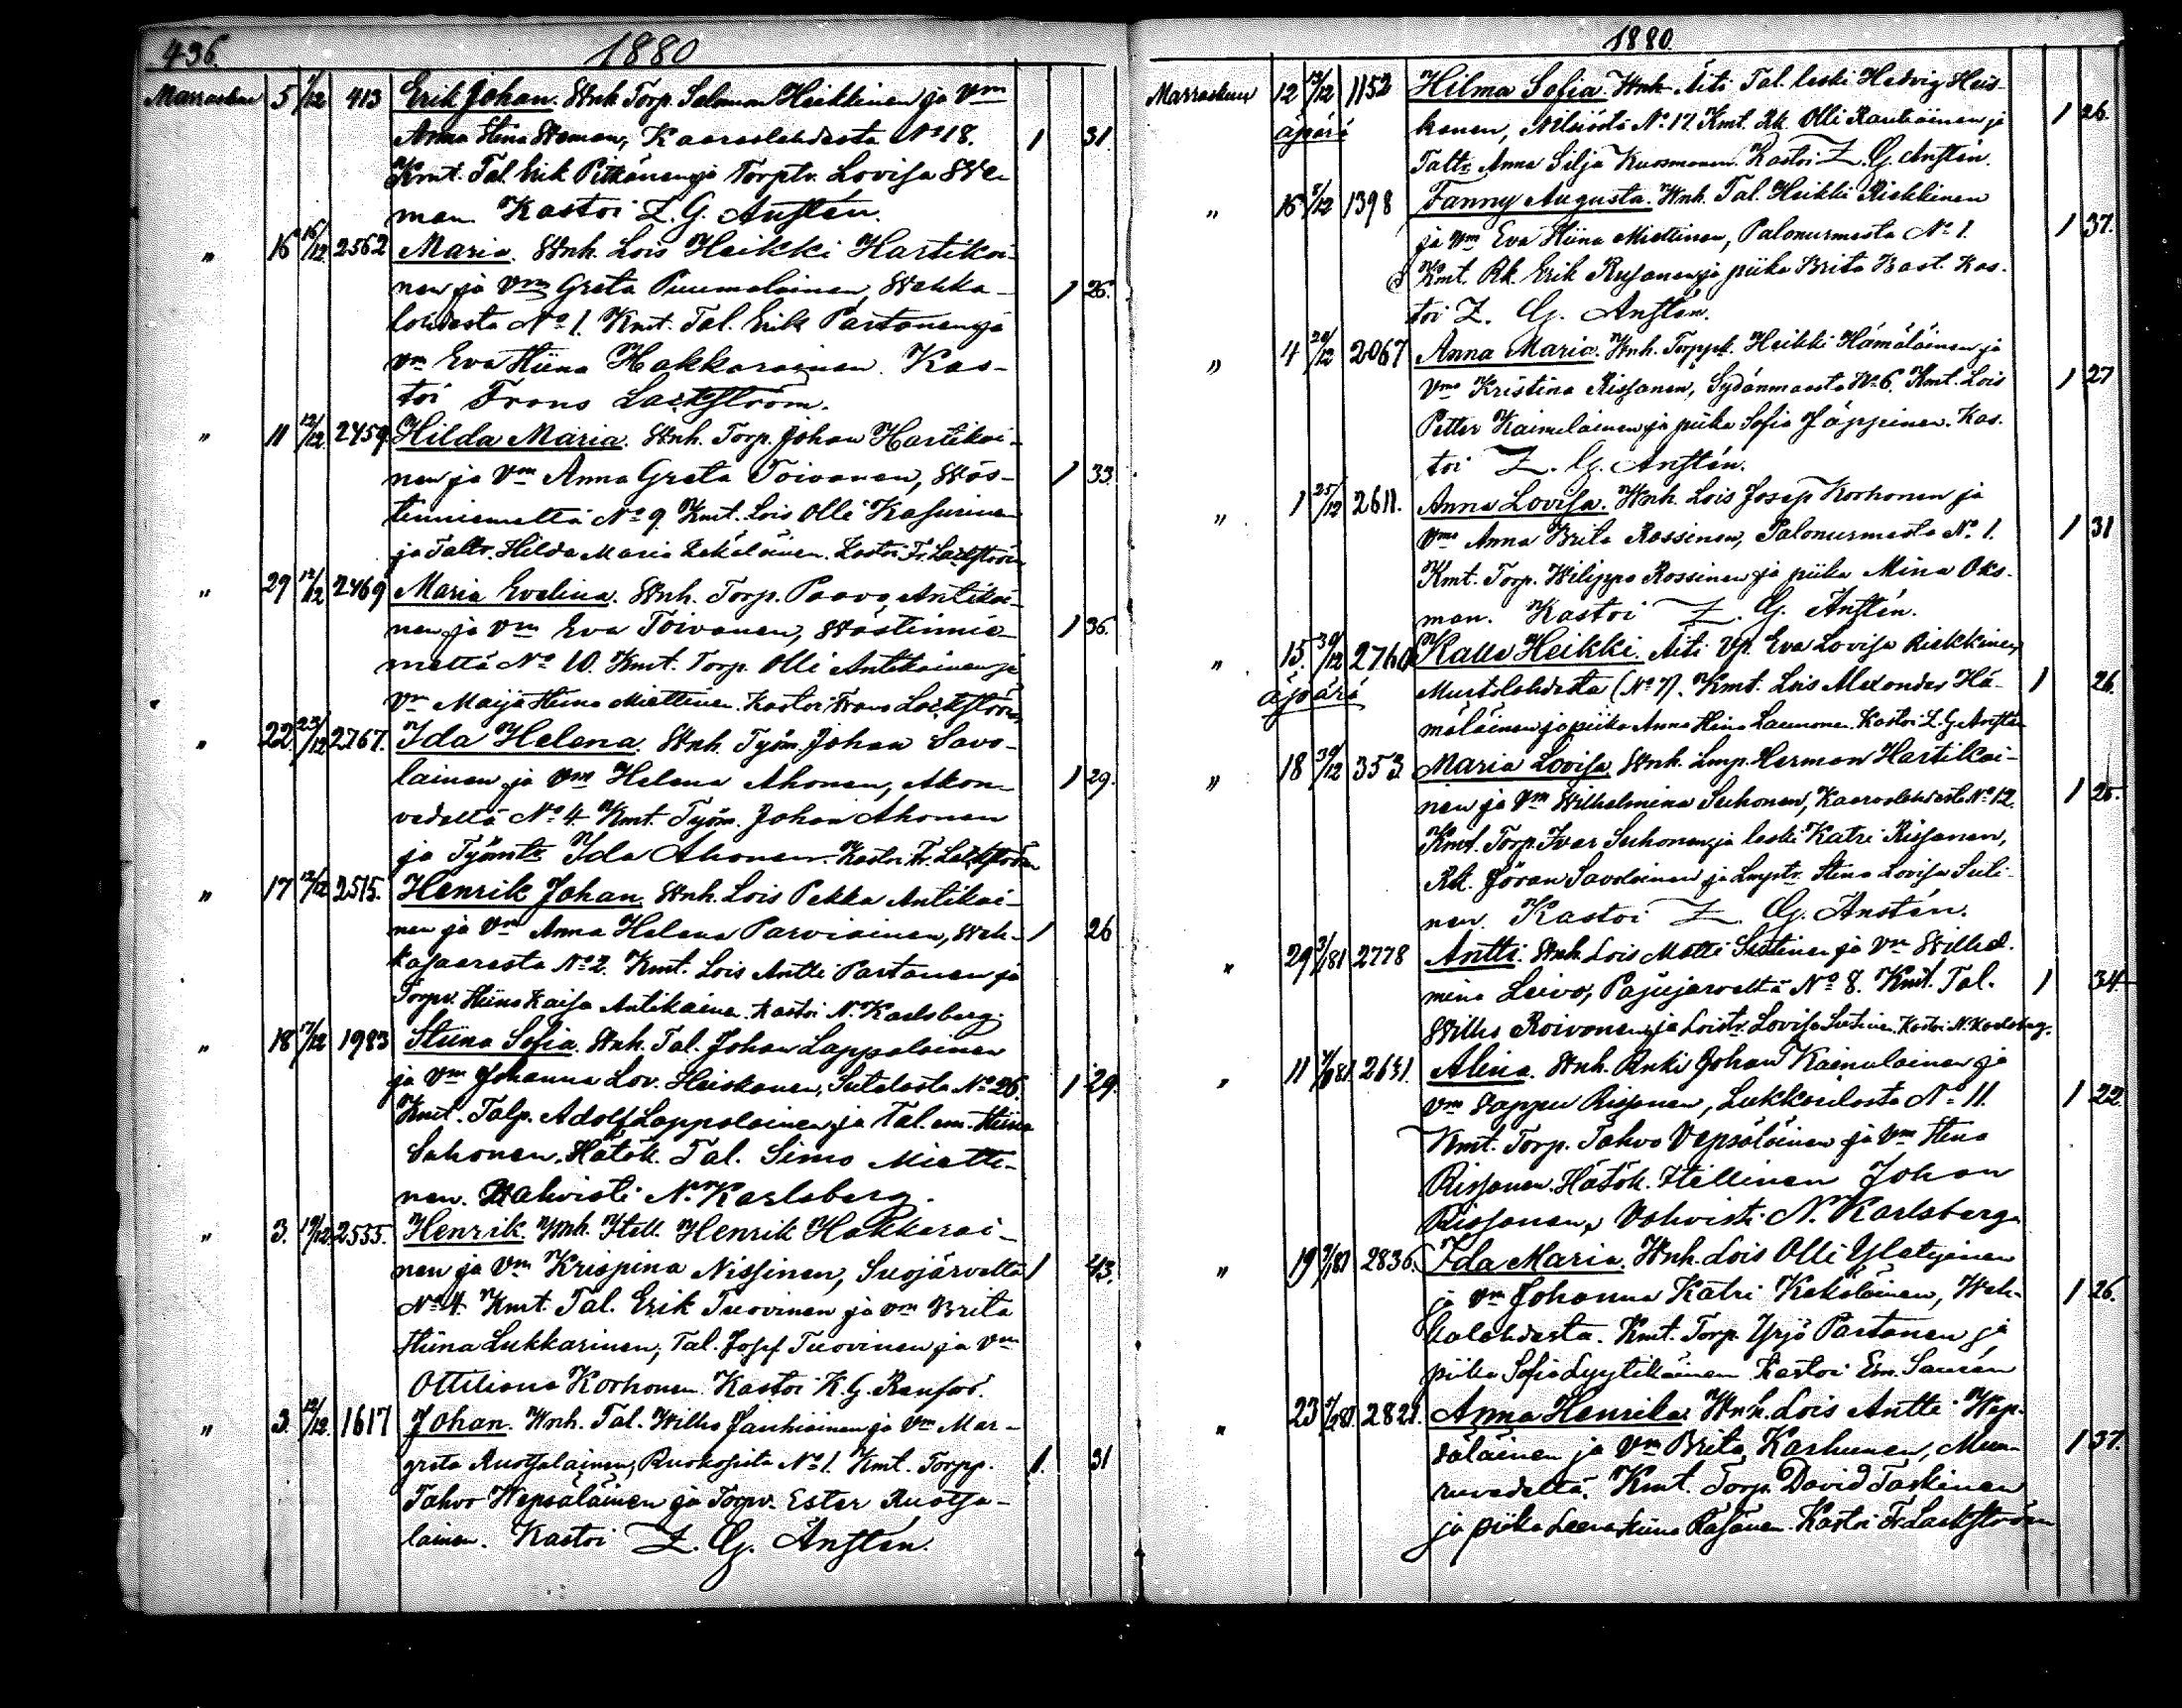 436.
1880
Marraskuu 5 1/12 413 Erik Johan. Wnh. Torp. Salomon Heikkinen ja Vm
Anna Stina Weman, Kaaraslahdesta No 18. 1 31.
Kmt. Tal. Erik Pitkänen ja Torptr. Lovisa We-
man. Kastoi Z. G. Ansten.
" 16 16/12 2562 Maria. Wnh. Lois Heikki Hartikai-
nen ja Vm Greta Puumalainen, Wehka- 1 26.
lahdesta No 1. Kmt. Tal. Erik Partanen ja
Vm Eva Stiina Hakkarainen. Kas-
toi Frans Lackström.
" 11 12/12 2459 Hilda Maria. Wnh. Torp. Johan Hartikai-
nen ja Vm Anna Greta Toivanen, Wäs- 1 33
tinniemeltä No 9. Kmt. Lois Olli Kasurinen
ja Taltr. Hilda Maria Kekäläinen. Kastoi Fr. Lackström
" 29 12/12 2469 Maria Evelina. Wnh. Torp. Paavo Antikai-
nen ja Vm Eva Toivanen, Wästinnie- 1 36.
meltä No 10. Kmt. Torp. Olli Antikainen ja
Vm Maija Stiina Miettinen. Kastoi Frans Lackström
" 22 23/12 2767. Ida Helena. Wnh. Työm. Johan Savo-
lainen ja Vm Helena Ahonen, Akon- 1 29.
vedeltä No 4. Kmt. Työm. Johan Ahonen
ja Työmtr. Ida Ahonen. Kastoi Fr. Lackström
" 17 12/12 2515. Henrik Johan. Wnh. Lois Pekka Antikai-
nen ja Vm Anna Helena Parviainen, Weh- 1 26
kasaaresta No 2. Kmt. Lois Antti Partanen ja
Torpv. Stiina Kaisa Antikainen. Kastoi N. Karlsberg.
" 18 7/12 1983 Stiina Sofia. Wnh. Tal. Johan Lappalainen
ja Vm Johanna Lov. Heiskanen, Sutelasta No 26. 1 29.
Kmt. Talp. Adolf Lappalainen ja Tal. em. Stiina
Sahonen. Hätäk. Tal. Simo Mietti-
nen. Wahvisti N. Karlsberg.
" 3. 19/12 2555. Henrik. Wnh. Itell. Henrik Hakkarai-
nen ja Vm Krispina Nissinen, Suojärveltä 1 43.
No 4. Kmt. Tal. Erik Tuovinen ja Vm Brita
Stiina Lukkarinen, Tal. Josef Tuovinen ja Vm
Ottiliana Korhonen. Kastoi K. G.
" 3. 12/12 1617 Johan. Wnh. Tal. Wilho Jauhiainen ja Vm Mar-
greta Ruotsalainen, No 1. Kmt. Torpp. 1. 31
Tahvo Wepsäläinen ja Torpv. Ester Ruotsa-
lainen. Kastoi Z. G. Ansten.
1880.
Marraskuu 12 13/12 1152 Hilma Sofia. Wnh. Äiti Tal. leski Hedvig Heis-
äpärä kanen, Nilsiästä No 17. Kmt. Rk. Olli Rautiainen ja 1 26.
Taltr. Anna Silja Kuosmanen. Kastoi Z. G. Ansten.
" 16 5/12 1398 Fanny Augusta. Wnh. Tal. Heikki Riekkinen
ja Vm Eva Stiina Miettinen, Palonurmesta No 1. 1 37.
Kmt. Rk. Erik Rusanen ja piika Brita Bast. Kas-
toi Z. G. Ansten.
" 4 20/12 2067 Anna Maria. Wnh. Torppk. Heikki Hämäläinen ja
Vmo Kristina Rissanen, Sydänmaasta No 6. Kmt. Lois 1 27
Petter Kainulainen ja piika Sofia Jäppinen. Kas-
toi Z. G. Ansten.
" 1 25/12 2611. Anna Lovisa. Wnh. Lois Josep Korhonen ja
Vmo Anna Brita Rossinen, Palonurmesta No 1. 1 31
Kmt. Torp. Wilippo Rossinen ja piika Mina Oks-
man. Kastoi Z. G. Ansten.
" 15. 30/12 2760 Kalle Heikki. Äiti Vp. Eva Lovisa Riekkinen
äpärä Mustolahdesta (No 7). Kmt. Lois Alexander Hä- 1 26.
mäläinen ja piika Anna Stina Launonen. Kastoi Z. G. Ansten
" 18 30/12 353 Maria Lovisa. Wnh. Lmp. Herman Hartikai-
nen ja Vm Wilhelmina Suhonen, Kaaraslahdesta No 12. 1 25.
Kmt. Torp. Ivar Suhonen ja leski Katri Rissanen,
Rk. Jöran Savolainen ja Lmptr. Stina Lovisa Suti-
nen. Kastoi Z. G. Ansten.
" 29 3/1 81 2778 Antti. Wnh. Lois Matti Sutinen ja Vm Wilhel-
mina Leivo, Pajujärveltä No 8. Kmt. Tal. 1 34
Wilho Roivonen ja Loistr. Lovisa Sutinen. Kastoi N. Karlsberg.
" 11 81. 2631. Alina. Wnh. Renki Johan Kainulainen ja
Vm Sappu Rissanen, Lukkarilasta No 11. 1 22.
Kmt. Torp. Tahvo Vepsäläinen ja Vm Stina
Rissanen. Hätäk. Itellinen Johan
Rissanen, Vahvisti N. Karlsberg.
" 19 /1 81 2836. Ida Maria. Wnh. Lois Olli Ylatyinen
ja Vm Johanna Katri Kekäläinen, Weh- 1 26.
kalahdesta. Kmt. Torp. Yrjö Partanen ja
piika Sofia Lyytikäinen. Kastoi Em. Saurén
" 23 /2 81. 2821. Anna Henrika. Wnh. Lois Antti Wep-
säläinen ja Vm Brita Karhunen, Muu- 1 37.
ruvedeltä. Kmt. Torp. David Taskinen
ja piika Leena Stiina Räsänen. Kastoi Fr. Lackström